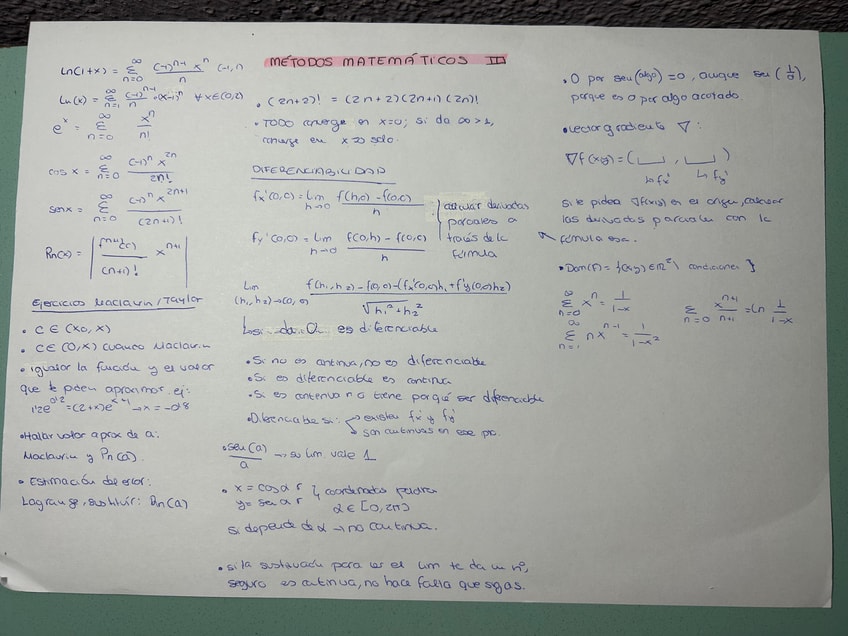 MÉTODOS MATEMÁTICOS III
Ln(1+x) = ∞ Σ n=0 (-1)^n-1 x^n / n (-1,1)
Ln(x) = ∞ Σ n=1 (-1)^n-1 / n · (x-1)^n ∀x∈(0,2)
e^x = ∞ Σ n=0 x^n / n!
cos x = ∞ Σ n=0 (-1)^n x^2n / 2n!
sen x = ∞ Σ n=0 (-1)^n x^2n+1 / (2n+1)!
Rn(x) = | f^n+1(c) / (n+1)! x^n+1 |
Ejercicios Maclaurin/Taylor
• C ∈ (x0, x)
• C ∈ (0, x) cuando Maclaurin
• igualar la función y el valor
que te piden aproximar. ej:
1'2e^0'2 = (2+x)e^x+1 → x = -0'8
• Hallar valor aprox de a:
Maclaurin y Pn(a).
• Estimación de error:
Lagrange, sustituir: Rn(a)
• (2n+2)! = (2n+2)(2n+1)(2n)!
• TODO converge en x=0; si da ∞ > 1,
converge en x=0 solo.
DIFERENCIABILIDAD
fx'(0,0) = Lim h→0 f(h,0) - f(0,0) / h
fy'(0,0) = Lim h→0 f(0,h) - f(0,0) / h
calcular derivadas
parciales a
través de la
fórmula
Lim (h1,h2)→(0,0) f(h1,h2) - f(0,0) - (fx'(0,0)h1 + fy'(0,0)h2) / √h1²+h2²
Lsi da 0 es diferenciable
• Si no es continua, no es diferenciable
• Si es diferenciable es continua
• Si es continua no tiene porqué ser diferenciable
• Diferenciable si: existen fx' y fy'
son continuas en ese pto.
• sen(a) / a → su lim vale 1
• x = cos α r } coordenadas polares
y = sen α r α ∈ [0, 2π)
si depende de α → no continua.
• si la sustituada para ver el lim te da un nº,
seguro es continua, no hace falta que sigas.
• 0 por sen(algo) = 0, aunque sen(1/0),
porque es 0 por algo acotado.
• vector gradiente ∇:
∇f(x,y) = ( , )
↳ fx' ↳ fy'
si te piden ∇f(x,y) en el origen, calcular
las derivadas parciales con la
fórmula esa.
• Dom(f) = {(x,y) ∈ R² \ condiciones }
∞ Σ n=0 x^n = 1 / 1-x
∞ Σ n=0 x^n+1 / n+1 = ln 1 / 1-x
∞ Σ n=1 n x^n-1 = 1 / 1-x²